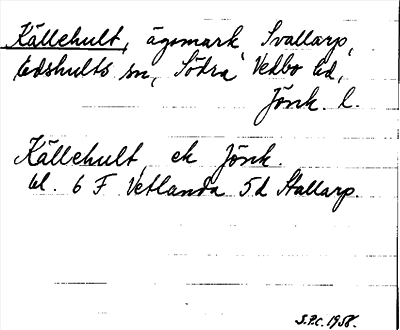 Källehult, ägomark, Svallarp,
Edshults sn, Södra Vedbo hd,
Jönk. l.
Källehult ek Jönk.
bl. 6 F Vetlanda 5d Stallarp.
S.P.C. 1958.